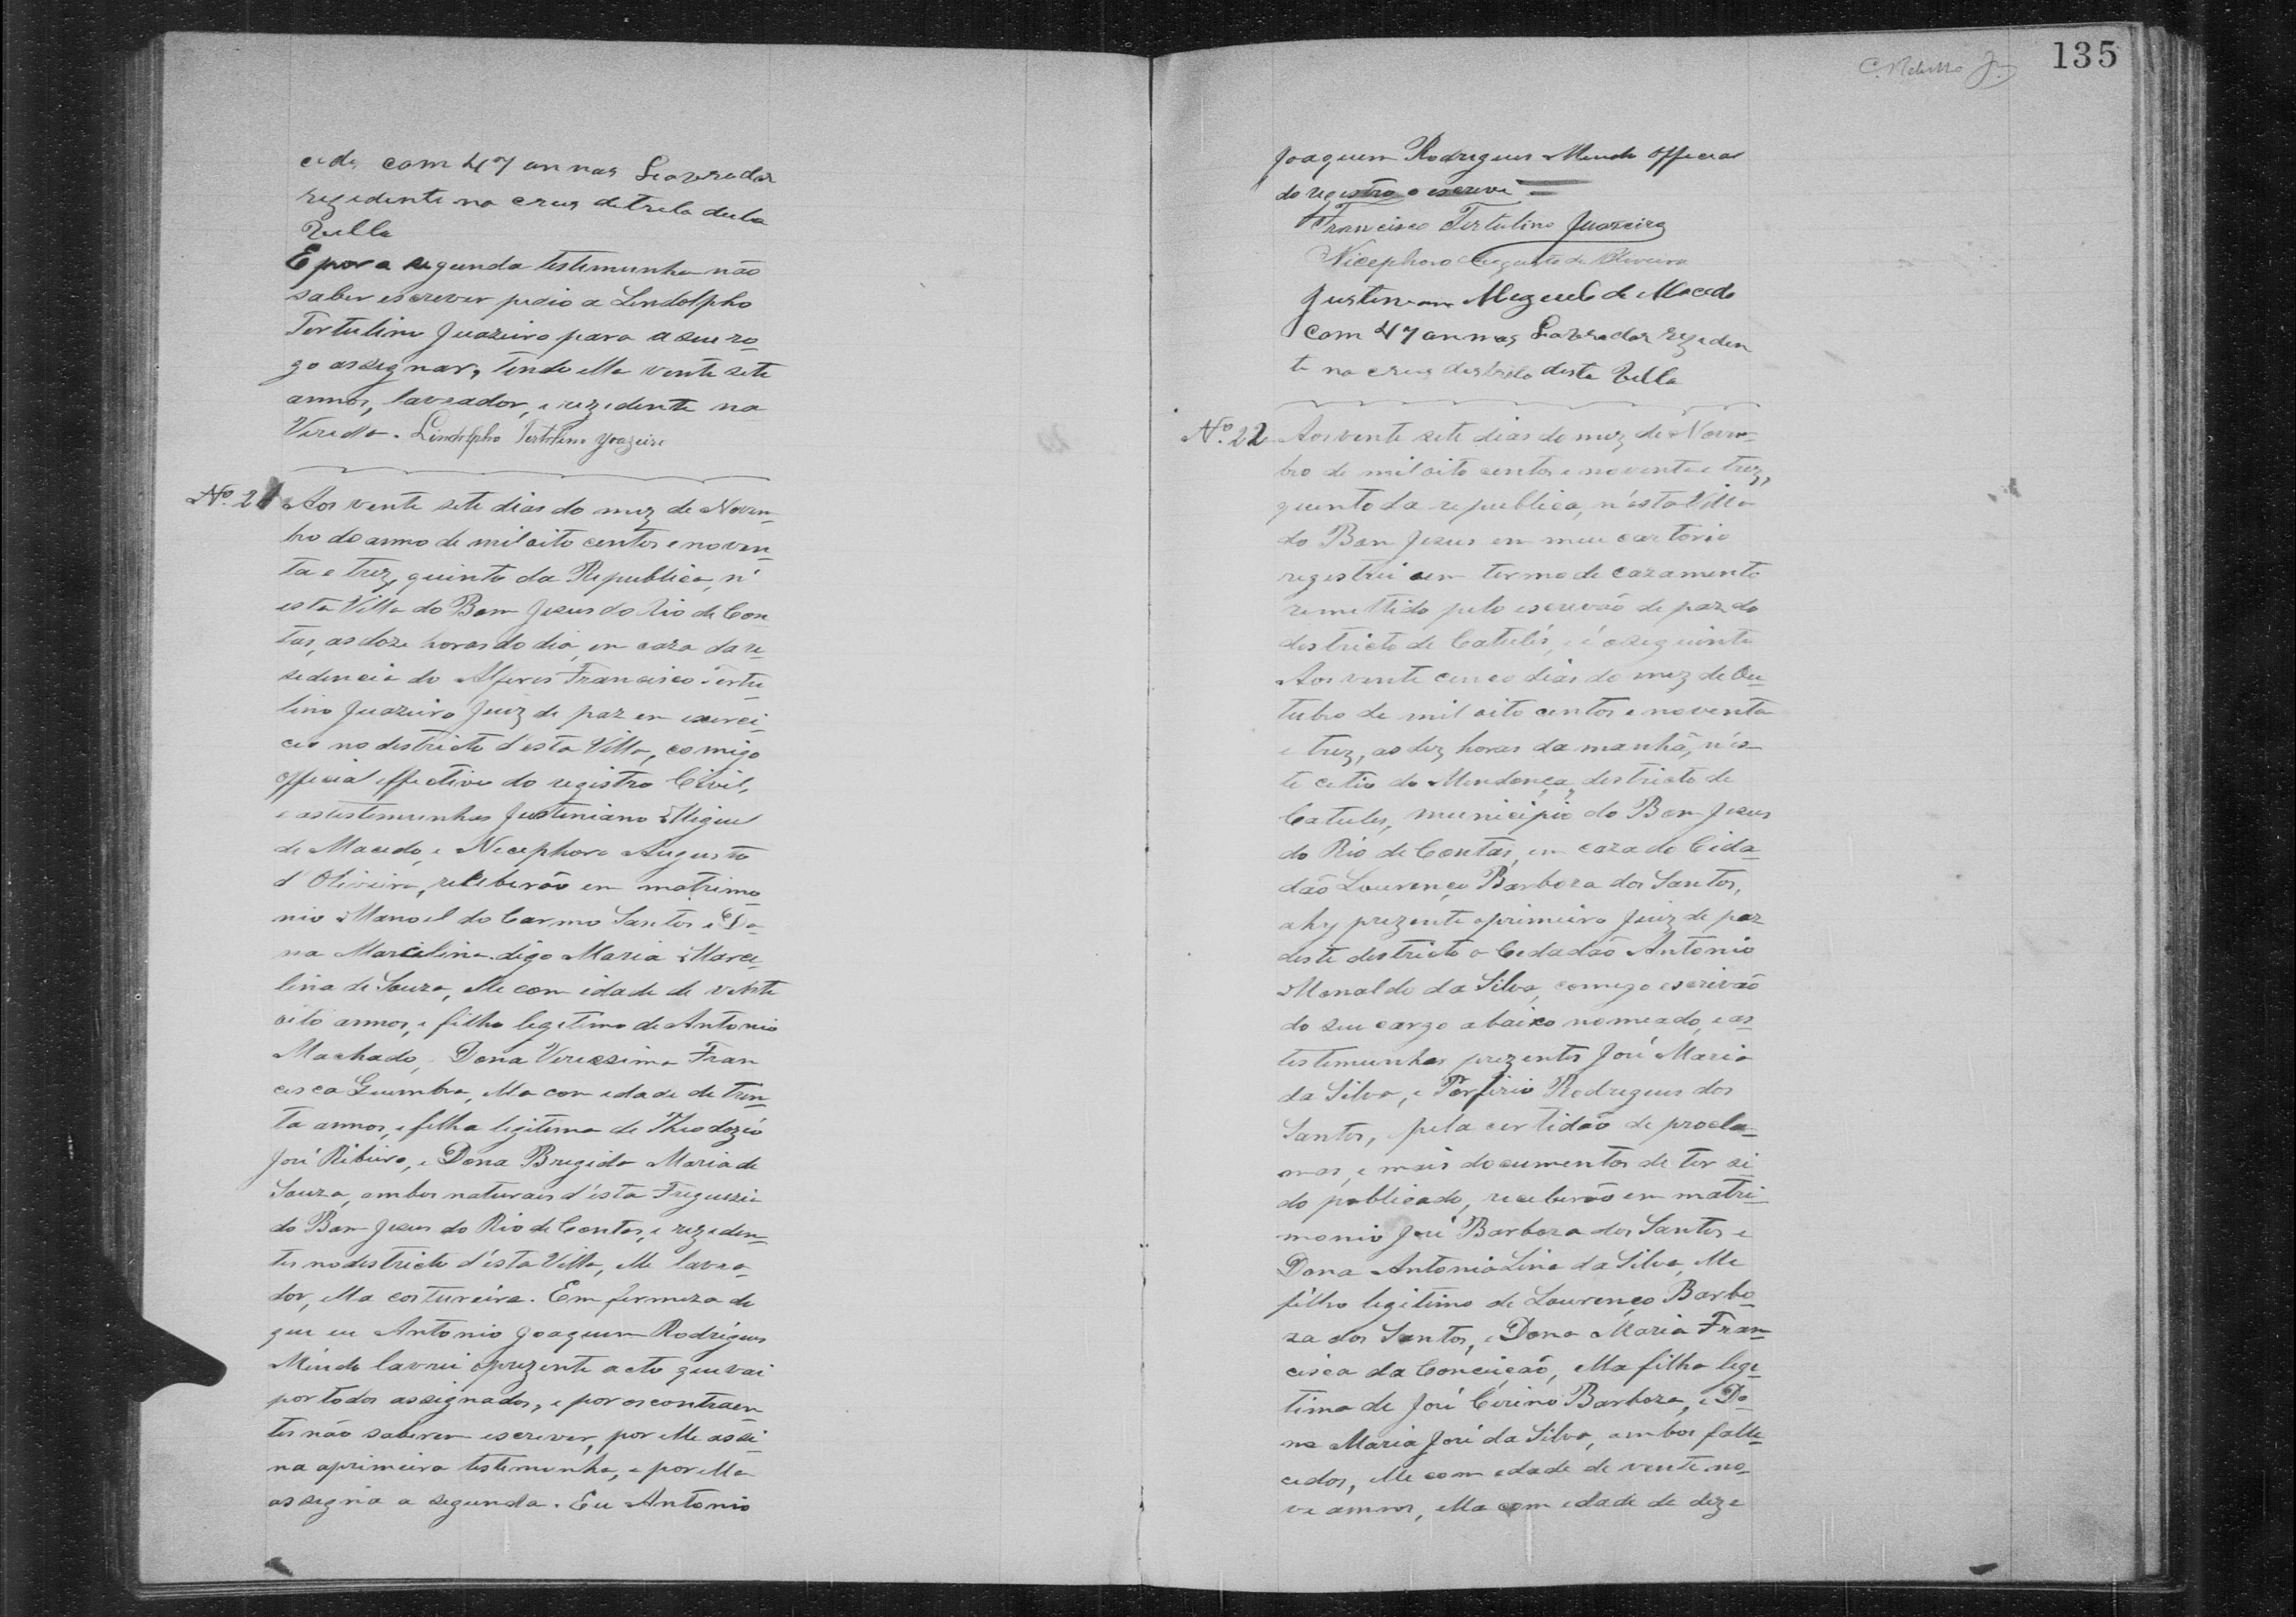 cedo com 47 annos Lavrador
rezidente na cruz detrelo desta
Villa
E por a segunda testemunha não
saber escrever pedio a Lindolpho
Tertulino Juazeiro para a seu ro-
go assignar, tendo elle vente sete
annos, lavrador, e rezidente na
Vereda. Lindolpho Tertulino Joazeiro
Nº 21 Aos vente sete dias do mez de Novem-
bro do anno de mil oito centos e noven-
ta e trez, quinto da Republica, n'
esta Villa do Bom Jesus do Rio de Con
tas, as doze horas do dia, em caza da re-
sidencia do Alferes Francisco Tertu-
lino Juazeiro Juiz de paz em exerci-
cio no destricto d'esta Villa, comigo
official effectivo do registro Civil,
e as testemunhas Justiniano Miguel
de Macedo, e Nicephoro Augusto
d'Oliveira, receberão em matrimo
nio Manoel do Carmo Santos e Do-
na Marcilina digo Maria Marce-
lina de Souza, elle com idade de vente
oito annos, e filho legetimo de Antonio
Machado, Dona Verissima Fran
cisca Guimba, ella com edade de trin-
ta annos, e filha legitima de Theodozio
José Ribeiro, e Dona Brigida Maria de
Souza, ambos naturais d'esta Freguezia
do Bom Jesus do Rio de Contas, e reziden-
tes no destricto d'ésta Villa, elle lavra-
dor, ella costureira. Em firmeza do
que eu Antonio Joaquim Rodrigues
Mendo lavrei o prezente acto que vai
por todos assignados, e por os contraen-
tes não saberem escrever, por elle assi-
na a primeira testemunha, e por ella
assigna a segunda. Eu Antonio
135
Joaquim Rodrigues Mendo Official
do registro o escrevi
Francisco Tertulino Juazeiro
Nicephoro Augusto de Oliveira
Justiniano Miguel de Macedo
com 47 annos Lavrador reziden
te na cruz destrito desta Villa
Nº. 22 Aos vente sete dias do mez de Novem-
bro de mil oito centos e noventa e trez,
quinto da republica, n'ésta Villa
do Bom Jesus em meu cartorio
registrei um termo de cazamento
remettido pelo escrivão de paz do
destricto de Catulés, e é o seguinte
Aos vente cinco dias do mez de Ou-
tubro de mil oito centos e noventa
e trez, as dez horas da manhã, n'es-
te citio do Mendonça, destricto de
Catules, municipio do Bom Jesus
do Rio de Contas, em caza do Cida-
dão Lourenço Barboza dos Santos,
ahy prezente o primeiro Juiz de paz
deste destricto o Cedadão Antonio
Monaldo da Silva, comego escrivão
do seu cargo abaixo nomeado, e as
testemunhas prezentes José Maria
da Silva, e Porfirio Rodrigues dos
Santos, pela certidão de procla-
mas, e mais documentos de ter si-
do publicado, receberão em matri-
monio José Barboza dos Santos e
Dona Antonia Lina da Silva, elle
filho legitimo de Lourenço Barbo-
za dos Santos, e Dona Maria Fran-
cisca da Conceição, ella filha lege-
tima de José Cirino Barboza, e Do-
na Maria José da Silva, ambos falle-
cedos, elle com edade de vente no-
ve annos, ella com edade de deze